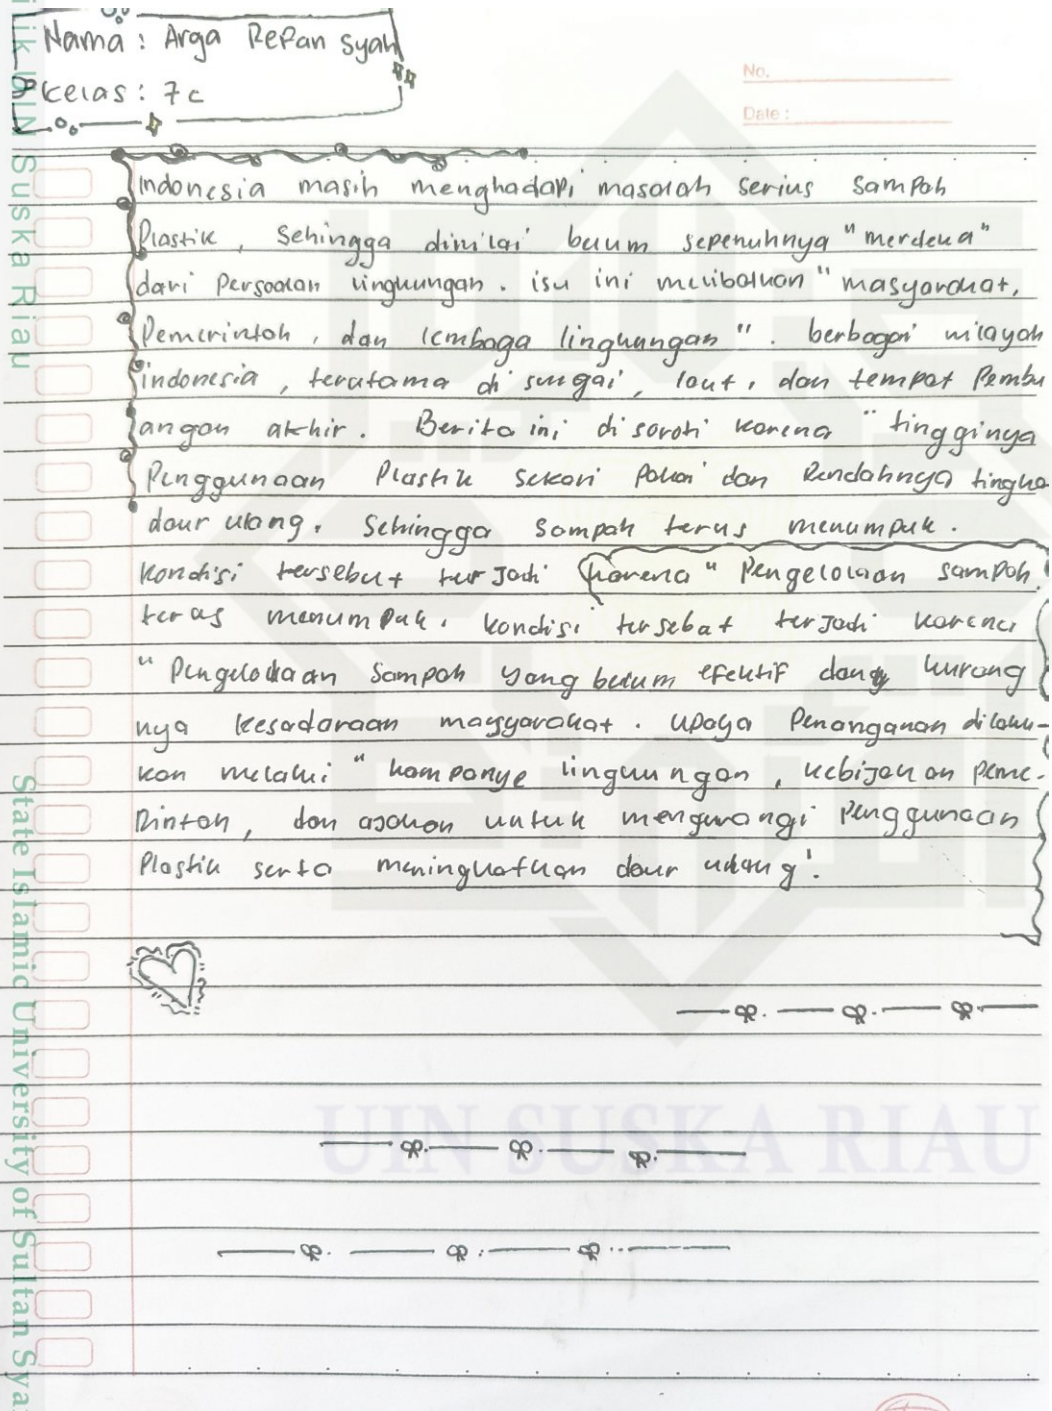 Nama : Arga Repan Syah
Kelas : 7c
No.
Date :
Indonesia masih menghadapi masalah serius sampah
Plastik, Sehingga dinilai belum sepenuhnya "merdeka"
dari Persoalan lingkungan. isu ini melibatkan "masyarakat,
Pemerintah, dan lembaga lingkungan". berbagai wilayah
indonesia, terutama di sungai, laut, dan tempat Pembu
angan akhir. Berita ini disoroti karena "tingginya
Penggunaan Plastik sekali pakai dan Rendahnya tingka
daur ulang. Sehingga sampah terus menumpuk.
Kondisi tersebut terjadi karena "Pengelolaan sampah
terus menumpuk. kondisi tersebat terjadi karena
"Pengelolaan Sampah yang belum efektif dan kurang
nya kesadaraan masyyarakat. upaya Penanganan dilaku-
kan melalui "kampanye lingkungan, kebijakan peme-
Rintah, dan ajakan untuk mengurangi Penggunaan
Plastik serta meningkatkan daur ulang'.
UIN SUSKA RIAU
UIN Suska Riau
State Islamic University of Sultan Sya